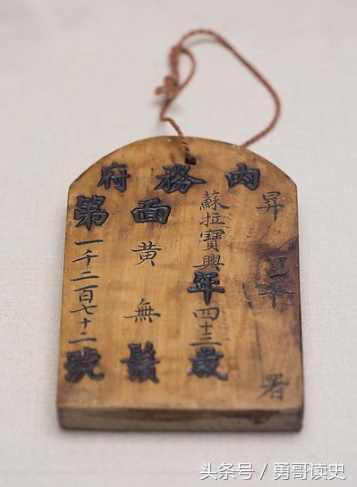 内務府
昇平署
蘇拉寶興年四十三歲
面黄無鬚
第一千二百七十二號
头条号 / 勇哥读史